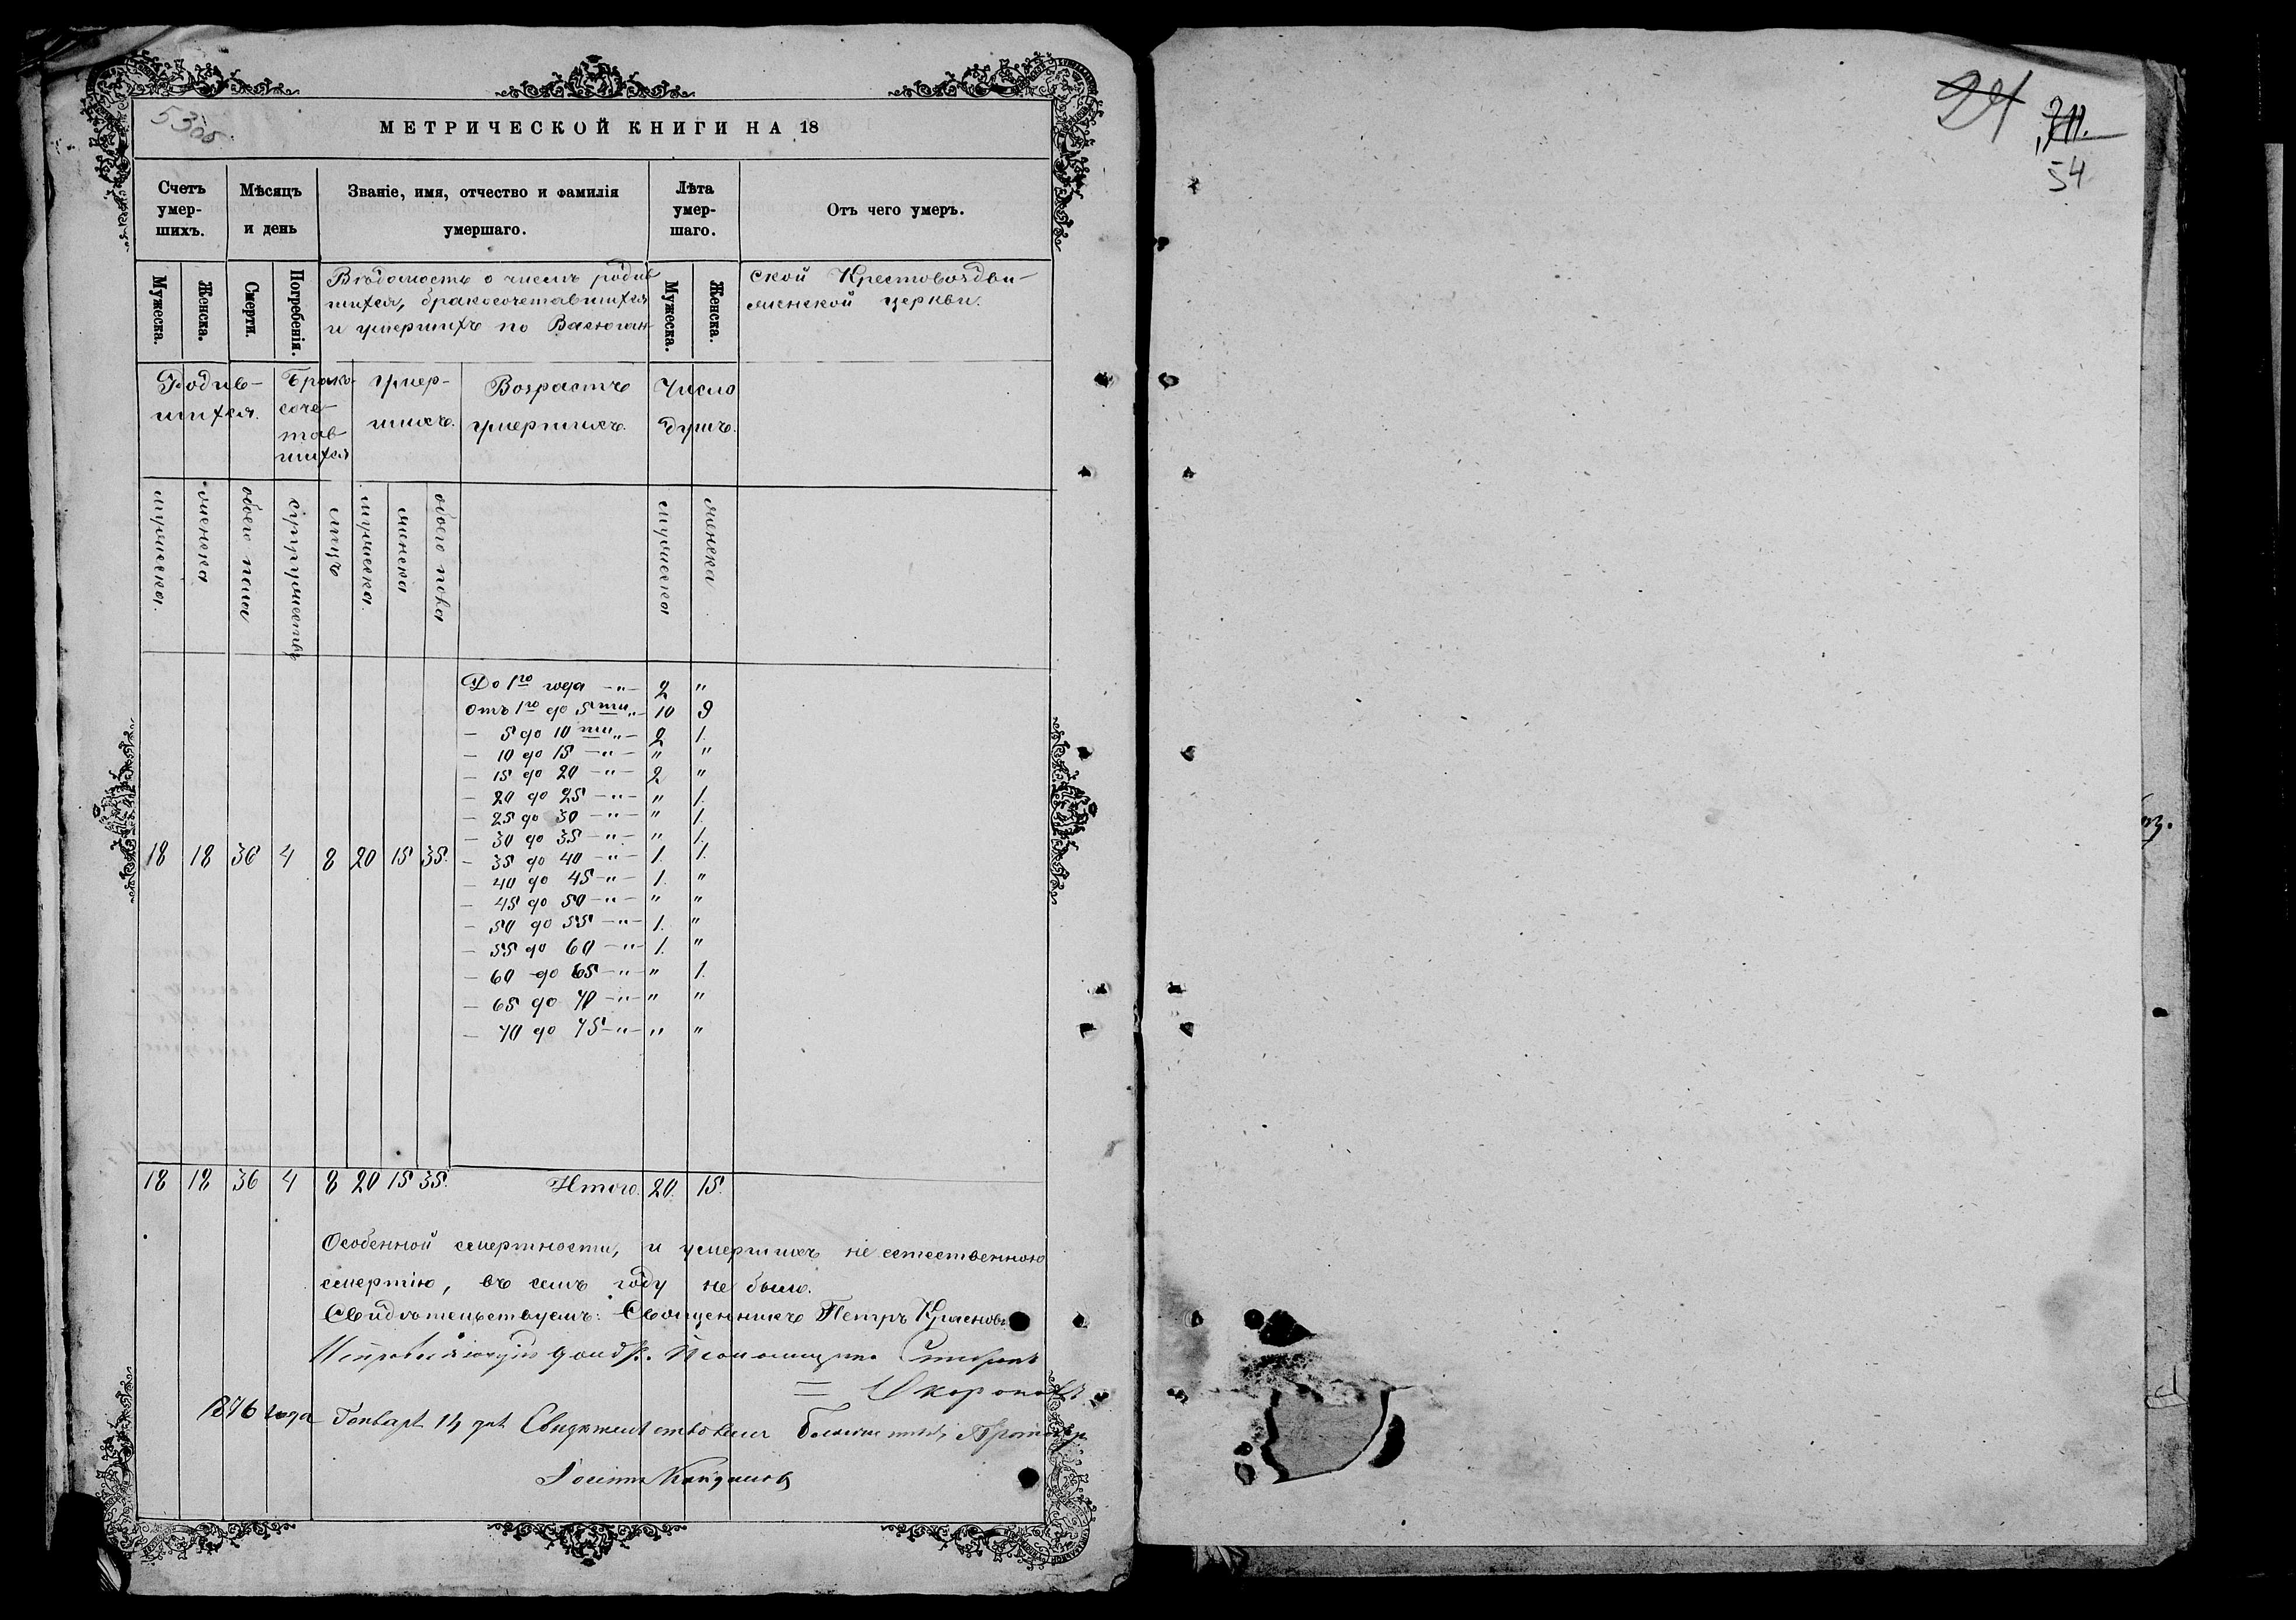 53об.
МЕТРИЧЕСКОЙ КНИГИ НА 18
Счетъ умер-шихъ.
Мѣсяцъ и день
Званіе, имя, отчество и фамилія умершаго.
Лѣта умер-шаго.
Отъ чего умеръ.
Мужеска.
Женска.
Смерти.
Погребенія.
Мужеска.
Женска.
Вѣдомость о числѣ родив
шихся, бракосочетавшихся
и умершихъ по Васюган-
ской Крестовоздви-
женской церкви.
Родив-
шихся.
Брако-
соче-
тав
шихся
Умер-
шихъ.
Возрастъ
умершихъ.
Число
душъ.
мужеска.
женска
обоего пола
супружествъ
лицъ
мужеска.
женска
обоего пола
мужеска
женска
До 1го года -"- 2 "
Отъ 1го до 5ти "- 10 9
- 5 до 10ти "- 2 1.
- 10 до 15 -"- " "
- 15 до 20 -"- 2 "
- 20 до 25 -"- " 1.
- 25 до 30 -"- " 1.
- 30 до 35 -"- " 1.
- 35 до 40 -"- 1. 1.
- 40 до 45 -"- 1. "
- 45 до 50 -"- " "
- 50 до 55 -"- 1. "
- 55 до 60 -"- 1. "
- 60 до 65 -"- " 1.
- 65 до 70 -"- " "
- 70 до 75 -"- " "
18 18 36 4 8 20 15 35.
18 18 36 4 8 20 15 35. Итого. 20. 15.
Особенной смертности, и умершихъ не естественною
смертію, въ семъ году не было.
Свидѣтельствуемъ: Священникъ Петръ
1876 года Января 14 дня Свидѣтельствовалъ
24
54